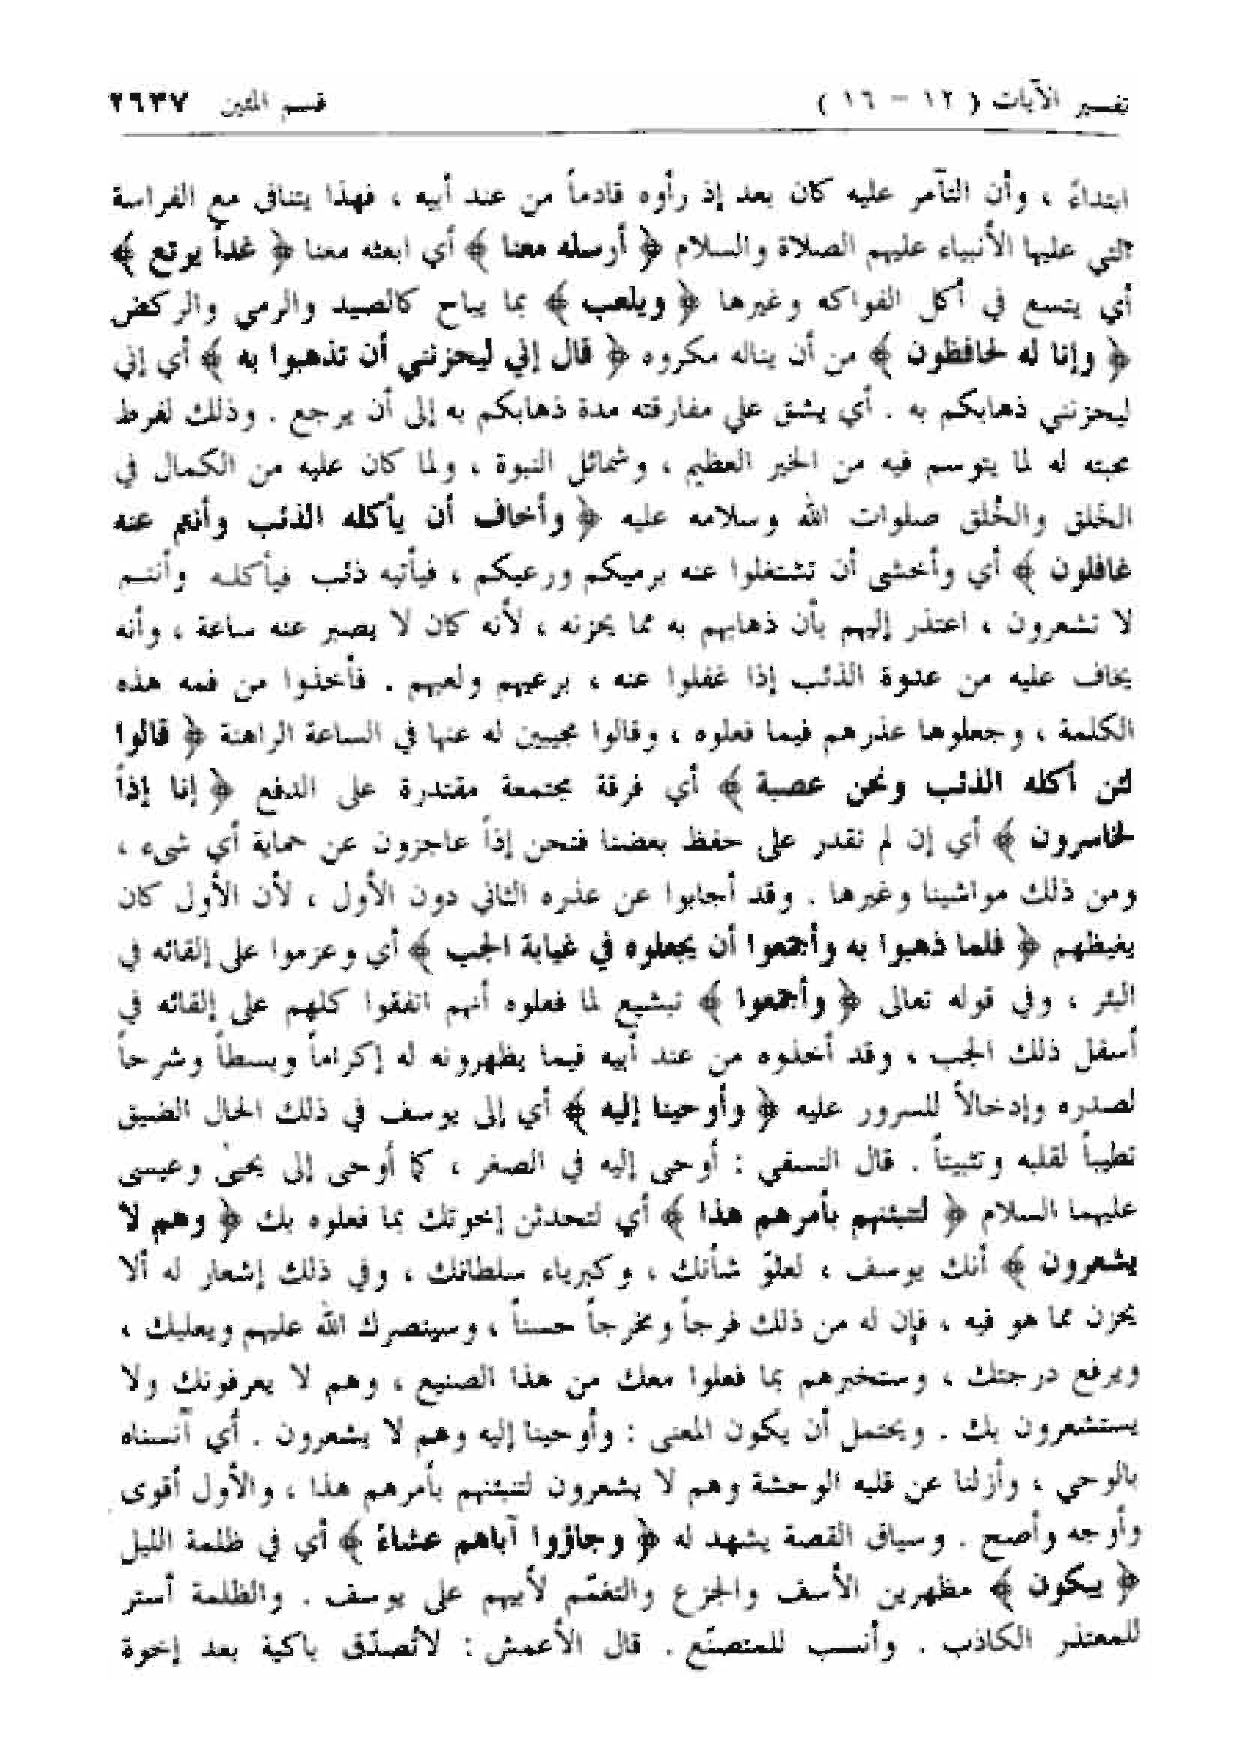 تفسير الآيات ( ١٢ - ١٦ ) قسم المئين ٢٦٣٧
ابتداءً ، وأن التآمر عليه كان بعد إذ رأوه قادماً من عند أبيه ، فهذا يتنافى مع الفراسة
التي عليها الأنبياء عليهم الصلاة والسلام ﴿ أرسله معنا ﴾ أي ابعثه معنا ﴿ غداً يرتع ﴾
أي يتسع في أكل الفواكه وغيرها ﴿ ويلعب ﴾ بما يباح كالصيد والرمي والركض
﴿ وإنا له لحافظون ﴾ من أن يناله مكروه ﴿ قال إني ليحزنني أن تذهبوا به ﴾ أي إني
ليحزنني ذهابكم به . أي يشق علي مفارقته مدة ذهابكم به إلى أن يرجع . وذلك لفرط
محبته له لما يتوسم فيه من الخير العظيم ، وشمائل النبوة ، ولما كان عليه من الكمال في
الخَلق والخُلق صلوات الله وسلامه عليه ﴿ وأخاف أن يأكله الذئب وأنتم عنه
غافلون ﴾ أي وأخشى أن تشتغلوا عنه برميكم ورعيكم ، فيأتيه ذئب فيأكله وأنتم
لا تشعرون ، اعتذر إليهم بأن ذهابهم به مما يحزنه ، لأنه كان لا يصبر عنه ساعة ، وأنه
يخاف عليه من عدوة الذئب إذا غفلوا عنه ، برعيهم ولعبهم . فأخذوا من فمه هذه
الكلمة ، وجعلوها عذرهم فيما فعلوه ، وقالوا مجيبين له عنها في الساعة الراهنة ﴿ قالوا
لئن أكله الذئب ونحن عصبة ﴾ أي فرقة مجتمعة مقتدرة على الدفع ﴿ إنا إذاً
لخاسرون ﴾ أي إن لم نقدر على حفظ بعضنا فنحن إذاً عاجزون عن حماية أي شيء ،
ومن ذلك مواشينا وغيرها . وقد أجابوا عن عذره الثاني دون الأول ، لأن الأول كان
يغيظهم ﴿ فلما ذهبوا به وأجمعوا أن يجعلوه في غيابة الجب ﴾ أي وعزموا على إلقائه في
البئر ، وفي قوله تعالى ﴿ وأجمعوا ﴾ تبشيع لما فعلوه أنهم اتفقوا كلهم على إلقائه في
أسفل ذلك الجب ، وقد أخذوه من عند أبيه فيما يظهرونه له إكراماً وبسطاً وشرحاً
لصدره وإدخالاً للسرور عليه ﴿ وأوحينا إليه ﴾ أي إلى يوسف في ذلك الحال الضيق
تطيباً لقلبه وتثبيتاً . قال النسفي : أوحى إليه في الصغر ، كما أوحى إلى يحيى وعيسى
عليهما السلام ﴿ لتنبئنهم بأمرهم هذا ﴾ أي لتحدثن إخوتك بما فعلوه بك ﴿ وهم لا
يشعرون ﴾ أنك يوسف ، لعلوّ شأنك ، وكبرياء سلطانك ، وفي ذلك إشعار له ألا
يحزن مما هو فيه ، فإن له من ذلك فرجاً ومخرجاً حسناً ، وسينصرك الله عليهم ويعليك ،
ويرفع درجتك ، وستخبرهم بما فعلوا معك من هذا الصنيع ، وهم لا يعرفونك ولا
يستشعرون بك . ويحتمل أن يكون المعنى : وأوحينا إليه وهم لا يشعرون . أي آنسناه
بالوحي ، وأزلنا عن قلبه الوحشة وهم لا يشعرون لتنبئنهم بأمرهم هذا ، والأول أقوى
وأوجه وأصح . وسياق القصة يشهد له ﴿ وجاؤوا أباهم عشاءً ﴾ أي في ظلمة الليل
﴿ يبكون ﴾ مظهرين الأسف والجزع والتغمّم لأبيهم على يوسف . والظلمة أستر
للمعتذر الكاذب . وأنسب للمتصنّع . قال الأعمش : لاتُصدّق باكية بعد إخوة